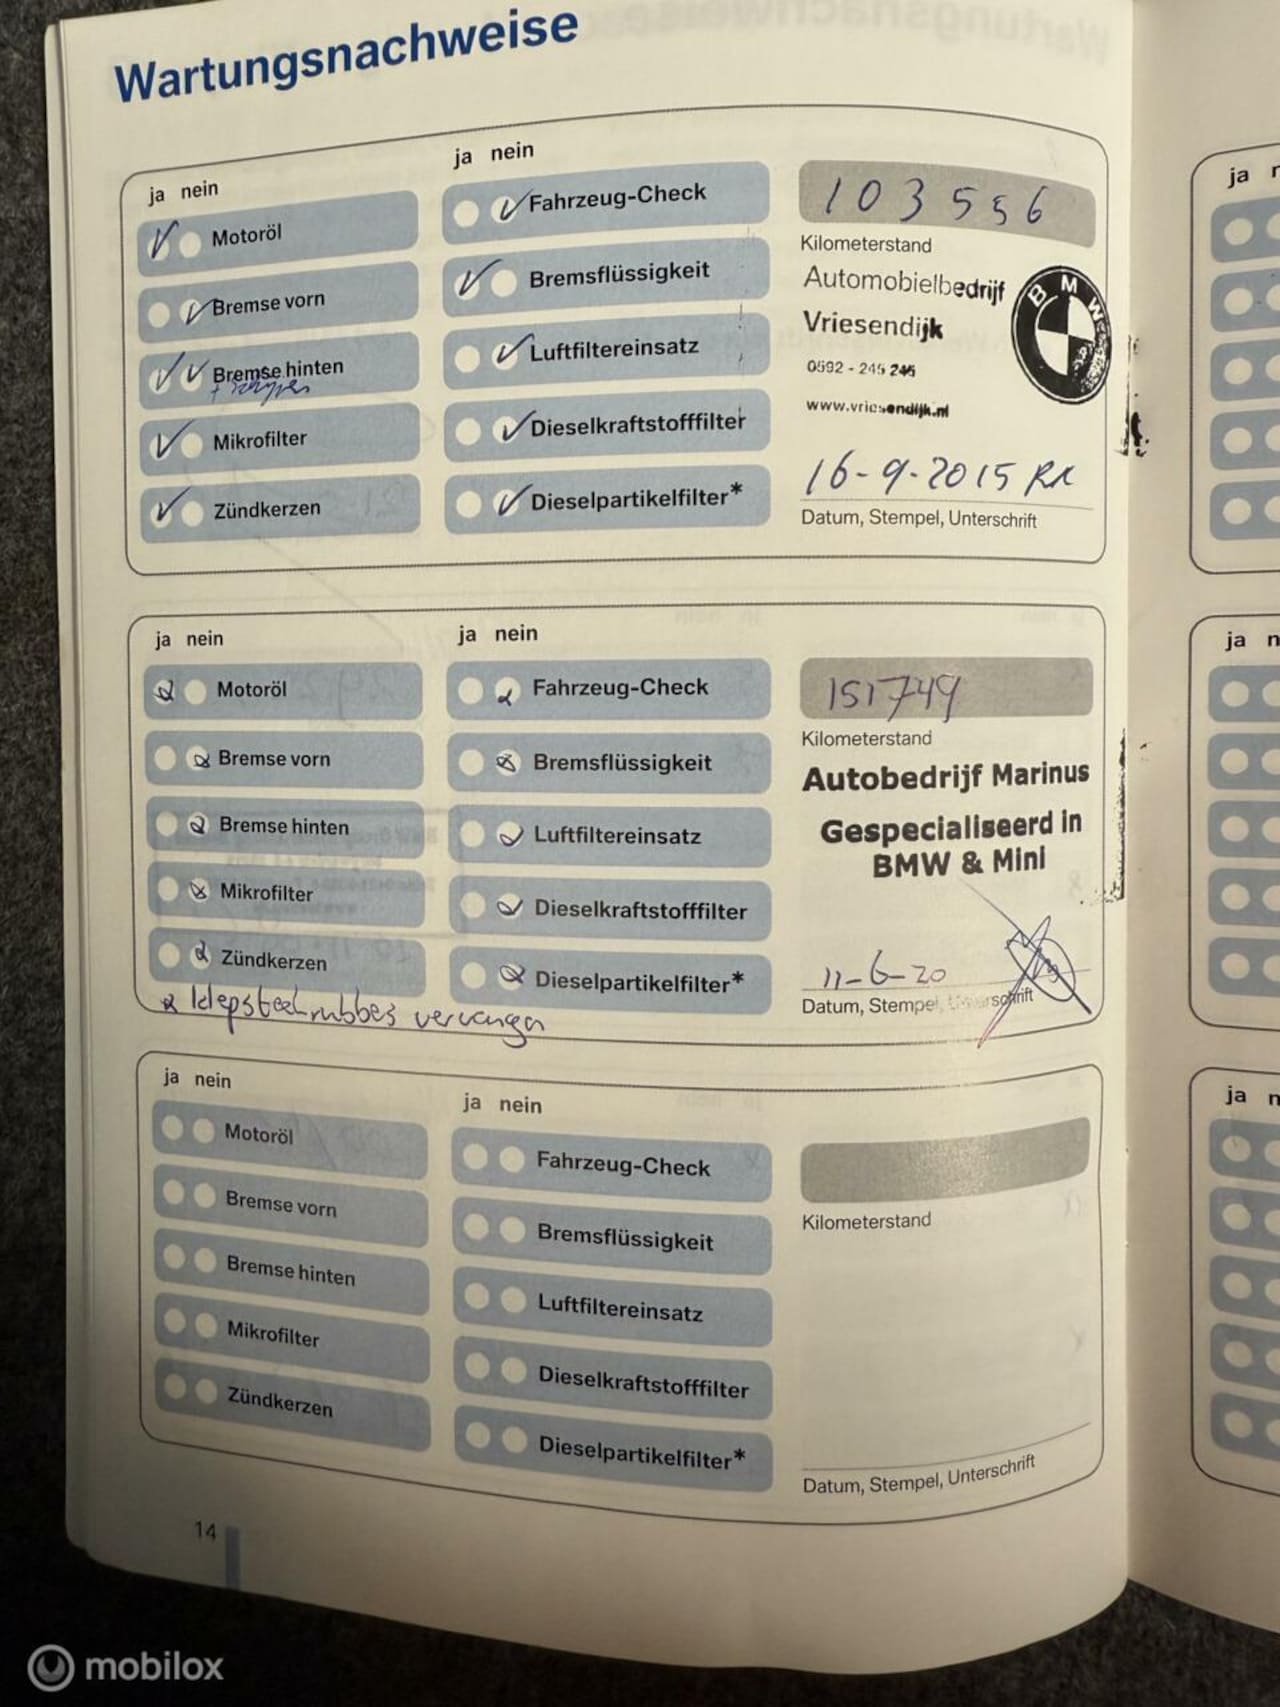 Wartungsnachweise
ja nein
Motoröl
Bremse vorn
Bremse hinten
Mikrofilter
Zündkerzen
ja nein
Fahrzeug-Check
Bremsflüssigkeit
Luftfiltereinsatz
Dieselkraftstofffilter
Dieselpartikelfilter*
103556
Kilometerstand
Automobielbedrijf
Vriesendijk
0592 - 245 245
www.vriesendijk.nl
BMW
16-9-2015 RK
Datum, Stempel, Unterschrift
ja nein
Motoröl
Bremse vorn
Bremse hinten
Mikrofilter
Zündkerzen
klepsteelrubbers vervangen
ja nein
Fahrzeug-Check
Bremsflüssigkeit
Luftfiltereinsatz
Dieselkraftstofffilter
Dieselpartikelfilter*
151749
Kilometerstand
Autobedrijf Marinus
Gespecialiseerd in
BMW & Mini
11-6-20
Datum, Stempel, Unterschrift
ja nein
Motoröl
Bremse vorn
Bremse hinten
Mikrofilter
Zündkerzen
ja nein
Fahrzeug-Check
Bremsflüssigkeit
Luftfiltereinsatz
Dieselkraftstofffilter
Dieselpartikelfilter*
Kilometerstand
Datum, Stempel, Unterschrift
14
ja
ja n
ja n
mobilox